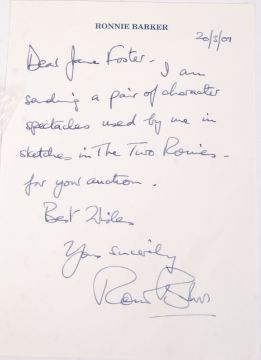 RONNIE BARKER
20/5/01
Dear Jane Foster - I am
sending a pair of character
spectacles used by me in
sketches in The Two Ronnies -
for your auction.
Best Wishes
Yours sincerely